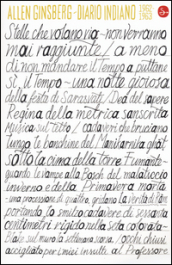 ALLEN GINSBERG · DIARIO INDIANO 1962 1963
Stelle che volano via - non verranno
mai raggiunte / a meno
di non mandare il Tempo a puttane
sì, il Tempo - una notte gloriosa
della festa di Sarasvati, Dea del sapere
Regina della metrica sanscrita
Musica sul tetto / cadaveri che bruciano
lungo le banchine del Manikarnika ghat
sotto la cima della torre fumante
quando le vampe alla Bosch del malaticcio
inverno e della Primavera morta
una processione di quattro, gridano la verità di Ram
portando lo smilzo cadavere di sessanta
centimetri rigido nella seta colorata
sul muro la settimana / occhi chiusi
asciugato per i miei insulti al Professore